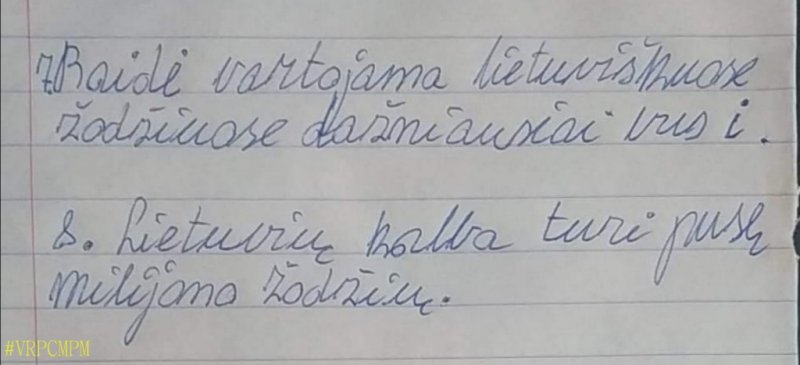 7. Raidė vartojama lietuviškuose
žodžiuose dažniausiai yra i.
8. Lietuvių kalba turi pusę
milijono žodžių.
#VRPCMPM